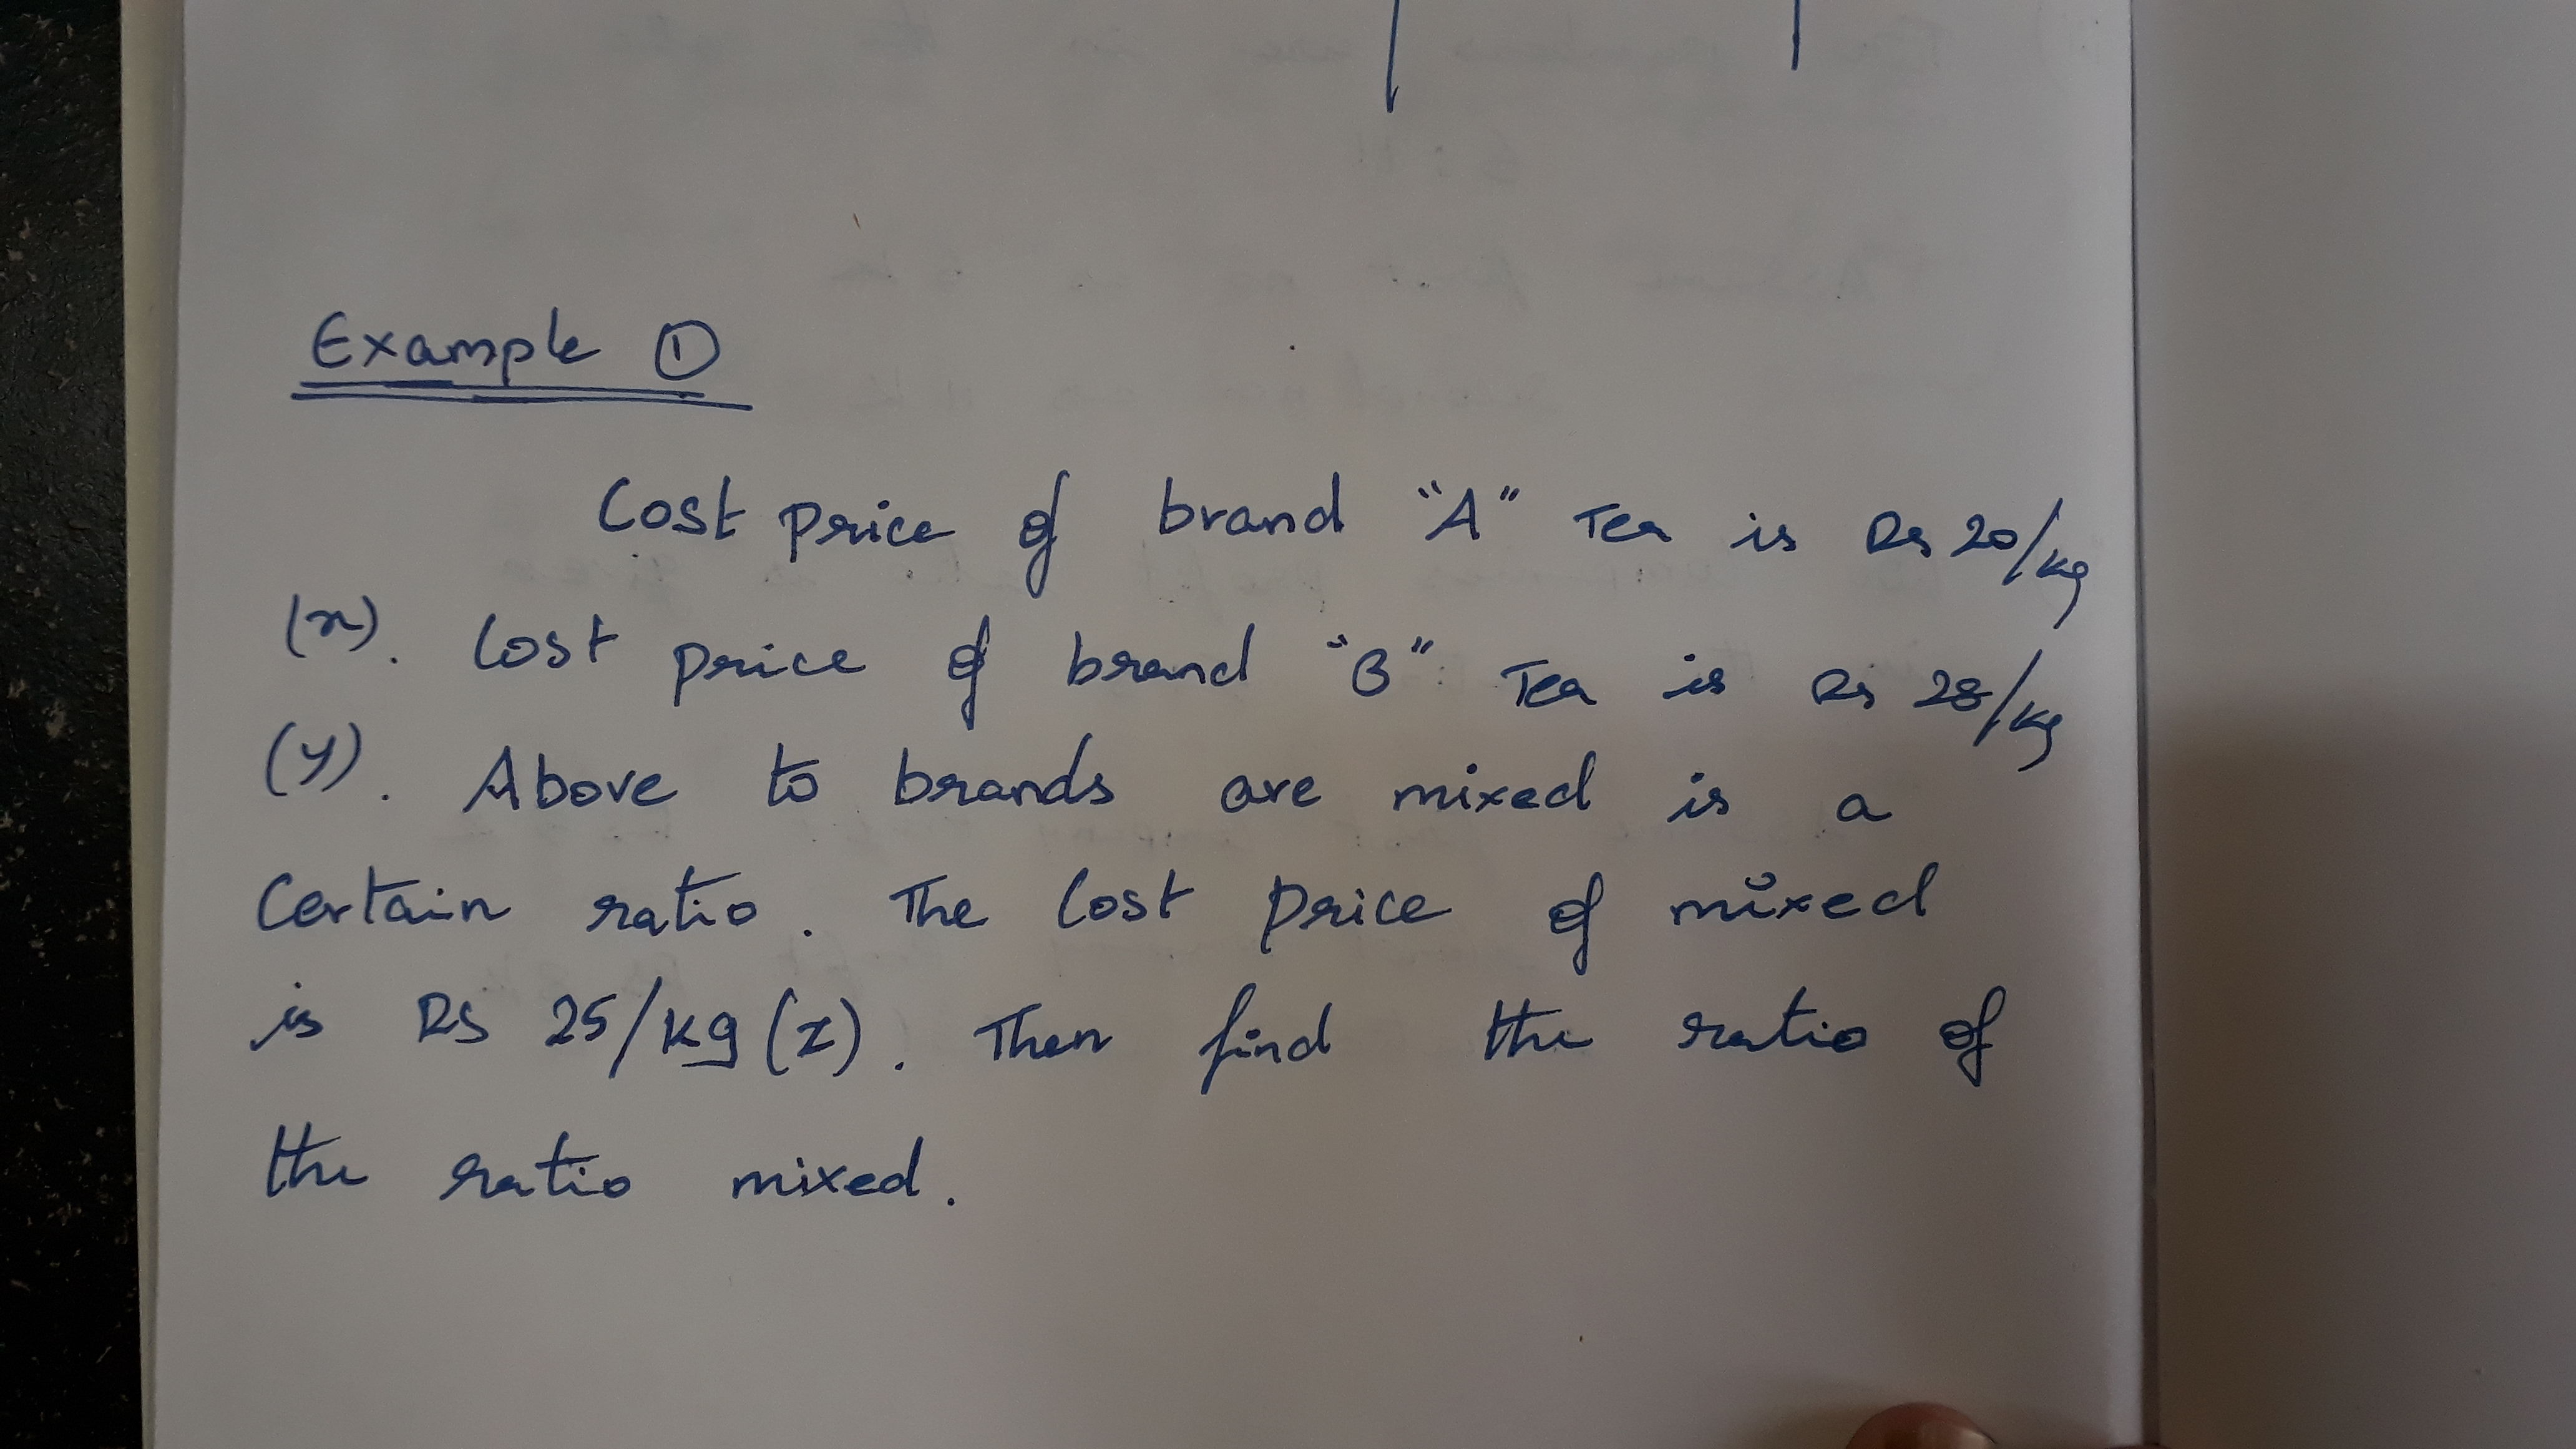 Example ①
Cost price of brand "A" Tea is Rs 20/kg
(x). Cost price of brand "B" Tea is Rs 28/kg
(y). Above to brands are mixed is a
Certain ratio. The Cost price of mixed
is RS 25/kg (z). Then find the ratio of
the ratio mixed.